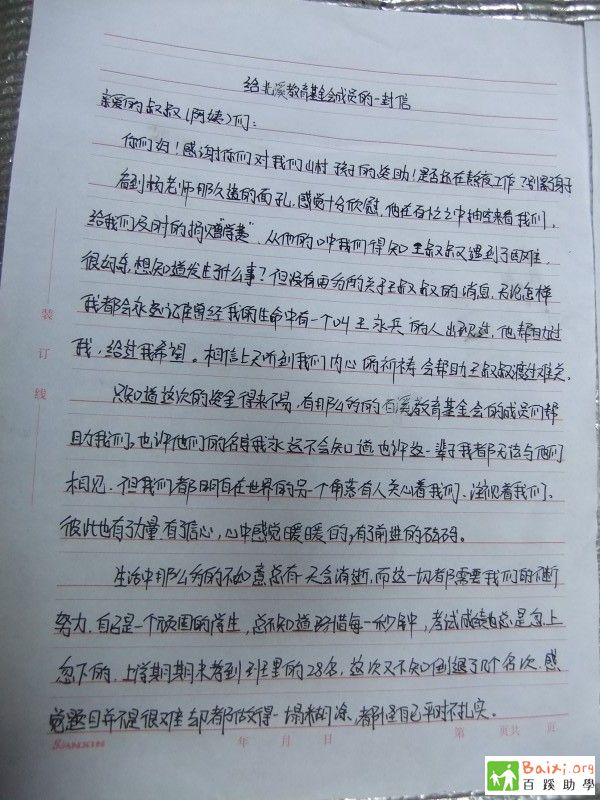 给北溪教育基金会成员的一封信
亲爱的叔叔(阿姨)们:
你们好!感谢你们对我们山村孩子的资助!是否还在熬夜工作?别累了身子
看到杨老师那久违的面孔,感觉十分欣慰,他在百忙之中抽空来看我们,
给我们及时的捐赠,从他的口中我们得知王叔叔又遇到了困难,
很纳闷,想知道发生了什么事?但没有再多的关于王叔叔的消息,无论怎样
我都会永远记住曾经我的生命中有一个叫王永兵的人出现过,他帮助过
我,给过我希望。相信上天听到我们内心的祈祷会帮助王叔叔渡过难关。
只知道这次的资金得来不易,有那么多的百溪教育基金会的成员们帮
助我们。也许他们的名字我永远不会知道,也许这一辈子我都无法与他们
相见,但我们都明白在世界的另一个角落有人关心着我们、注视着我们。
彼此也有了力量,有了信心,心中感觉暖暖的,有了前进的砝码。
生活中那么多的不如意总有一天会消逝,而这一切都需要我们的不断
努力,自己是一个顽固的学生,总不知道珍惜每一秒钟,考试成绩总是忽上
忽下的,上学期期末考到班里的28名,这次又不知倒退了几个名次,感
觉题目并不是很难却都做得一塌糊涂,都怪自己平时不扎实。
装
订
线
年 月 日 第 页共 页
Baixi.org
百蹊助學